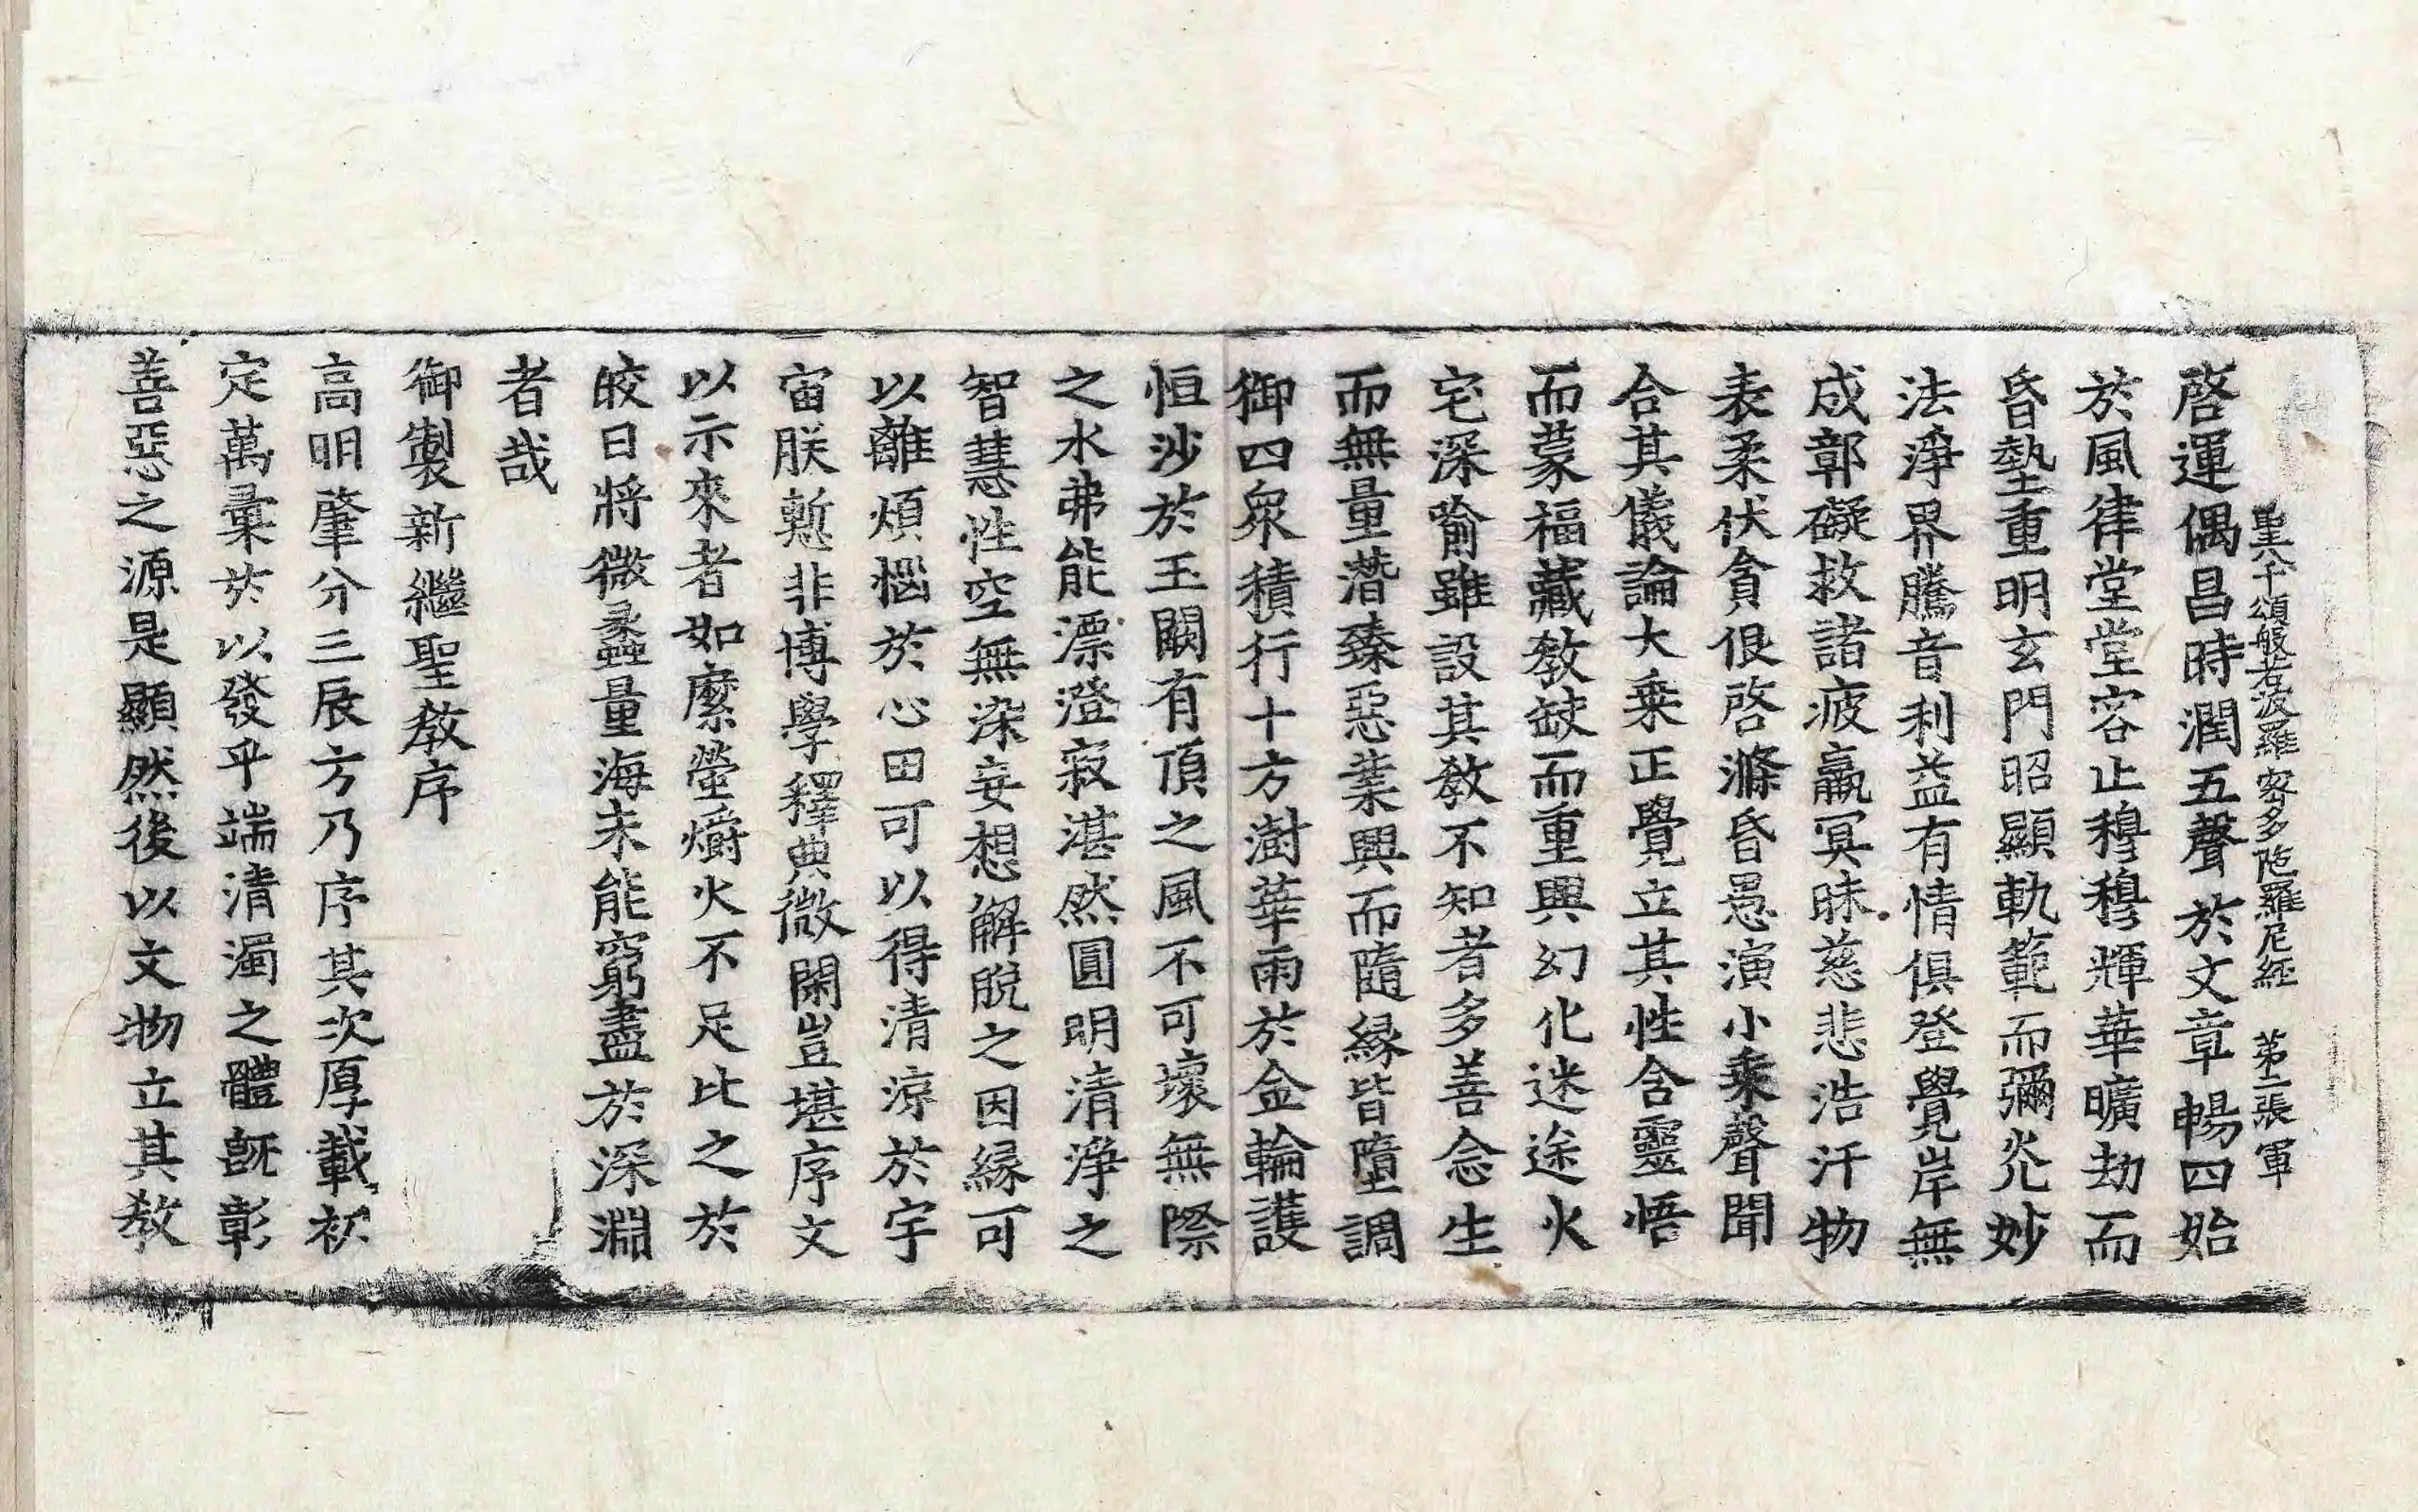 聖八千頌般若波羅蜜多陁羅尼經 第二張 軍
啓運偶昌時潤五聲於文章暢四始
於風律堂堂容止穆穆輝華曠劫而
昏墊重明玄門昭顯軌範而彌光妙
法淨界騰音利益有情俱登覺岸無
成鄣礙救諸疲羸冥昧慈悲浩汗物
表柔伏貪佷啓滌昏愚演小乘聲聞
合其儀論大乘正覺立其性含靈悟
而蒙福藏教缺而重興幻化迷途火
宅深喻雖設其教不知者多善念生
而無量潛臻惡業興而隨緣皆墮調
御四衆積行十方澍華雨於金輪護
恒沙於玉闕有頂之風不可壞無際
之水弗能漂澄寂湛然圓明清淨之
智慧性空無染妄想解脫之因緣可
以離煩惱於心田可以得清涼於宇
宙朕慙非博學釋典微閑豈堪序文
以示來者如縻螢爝火不足比之於
皎日將微蠡量海未能窮盡於深淵
者哉
御製新繼聖教序
高明肇分三辰方乃序其次厚載初
定萬彙於以發乎端清濁之體旣彰
善惡之源是顯然後以文物立其教